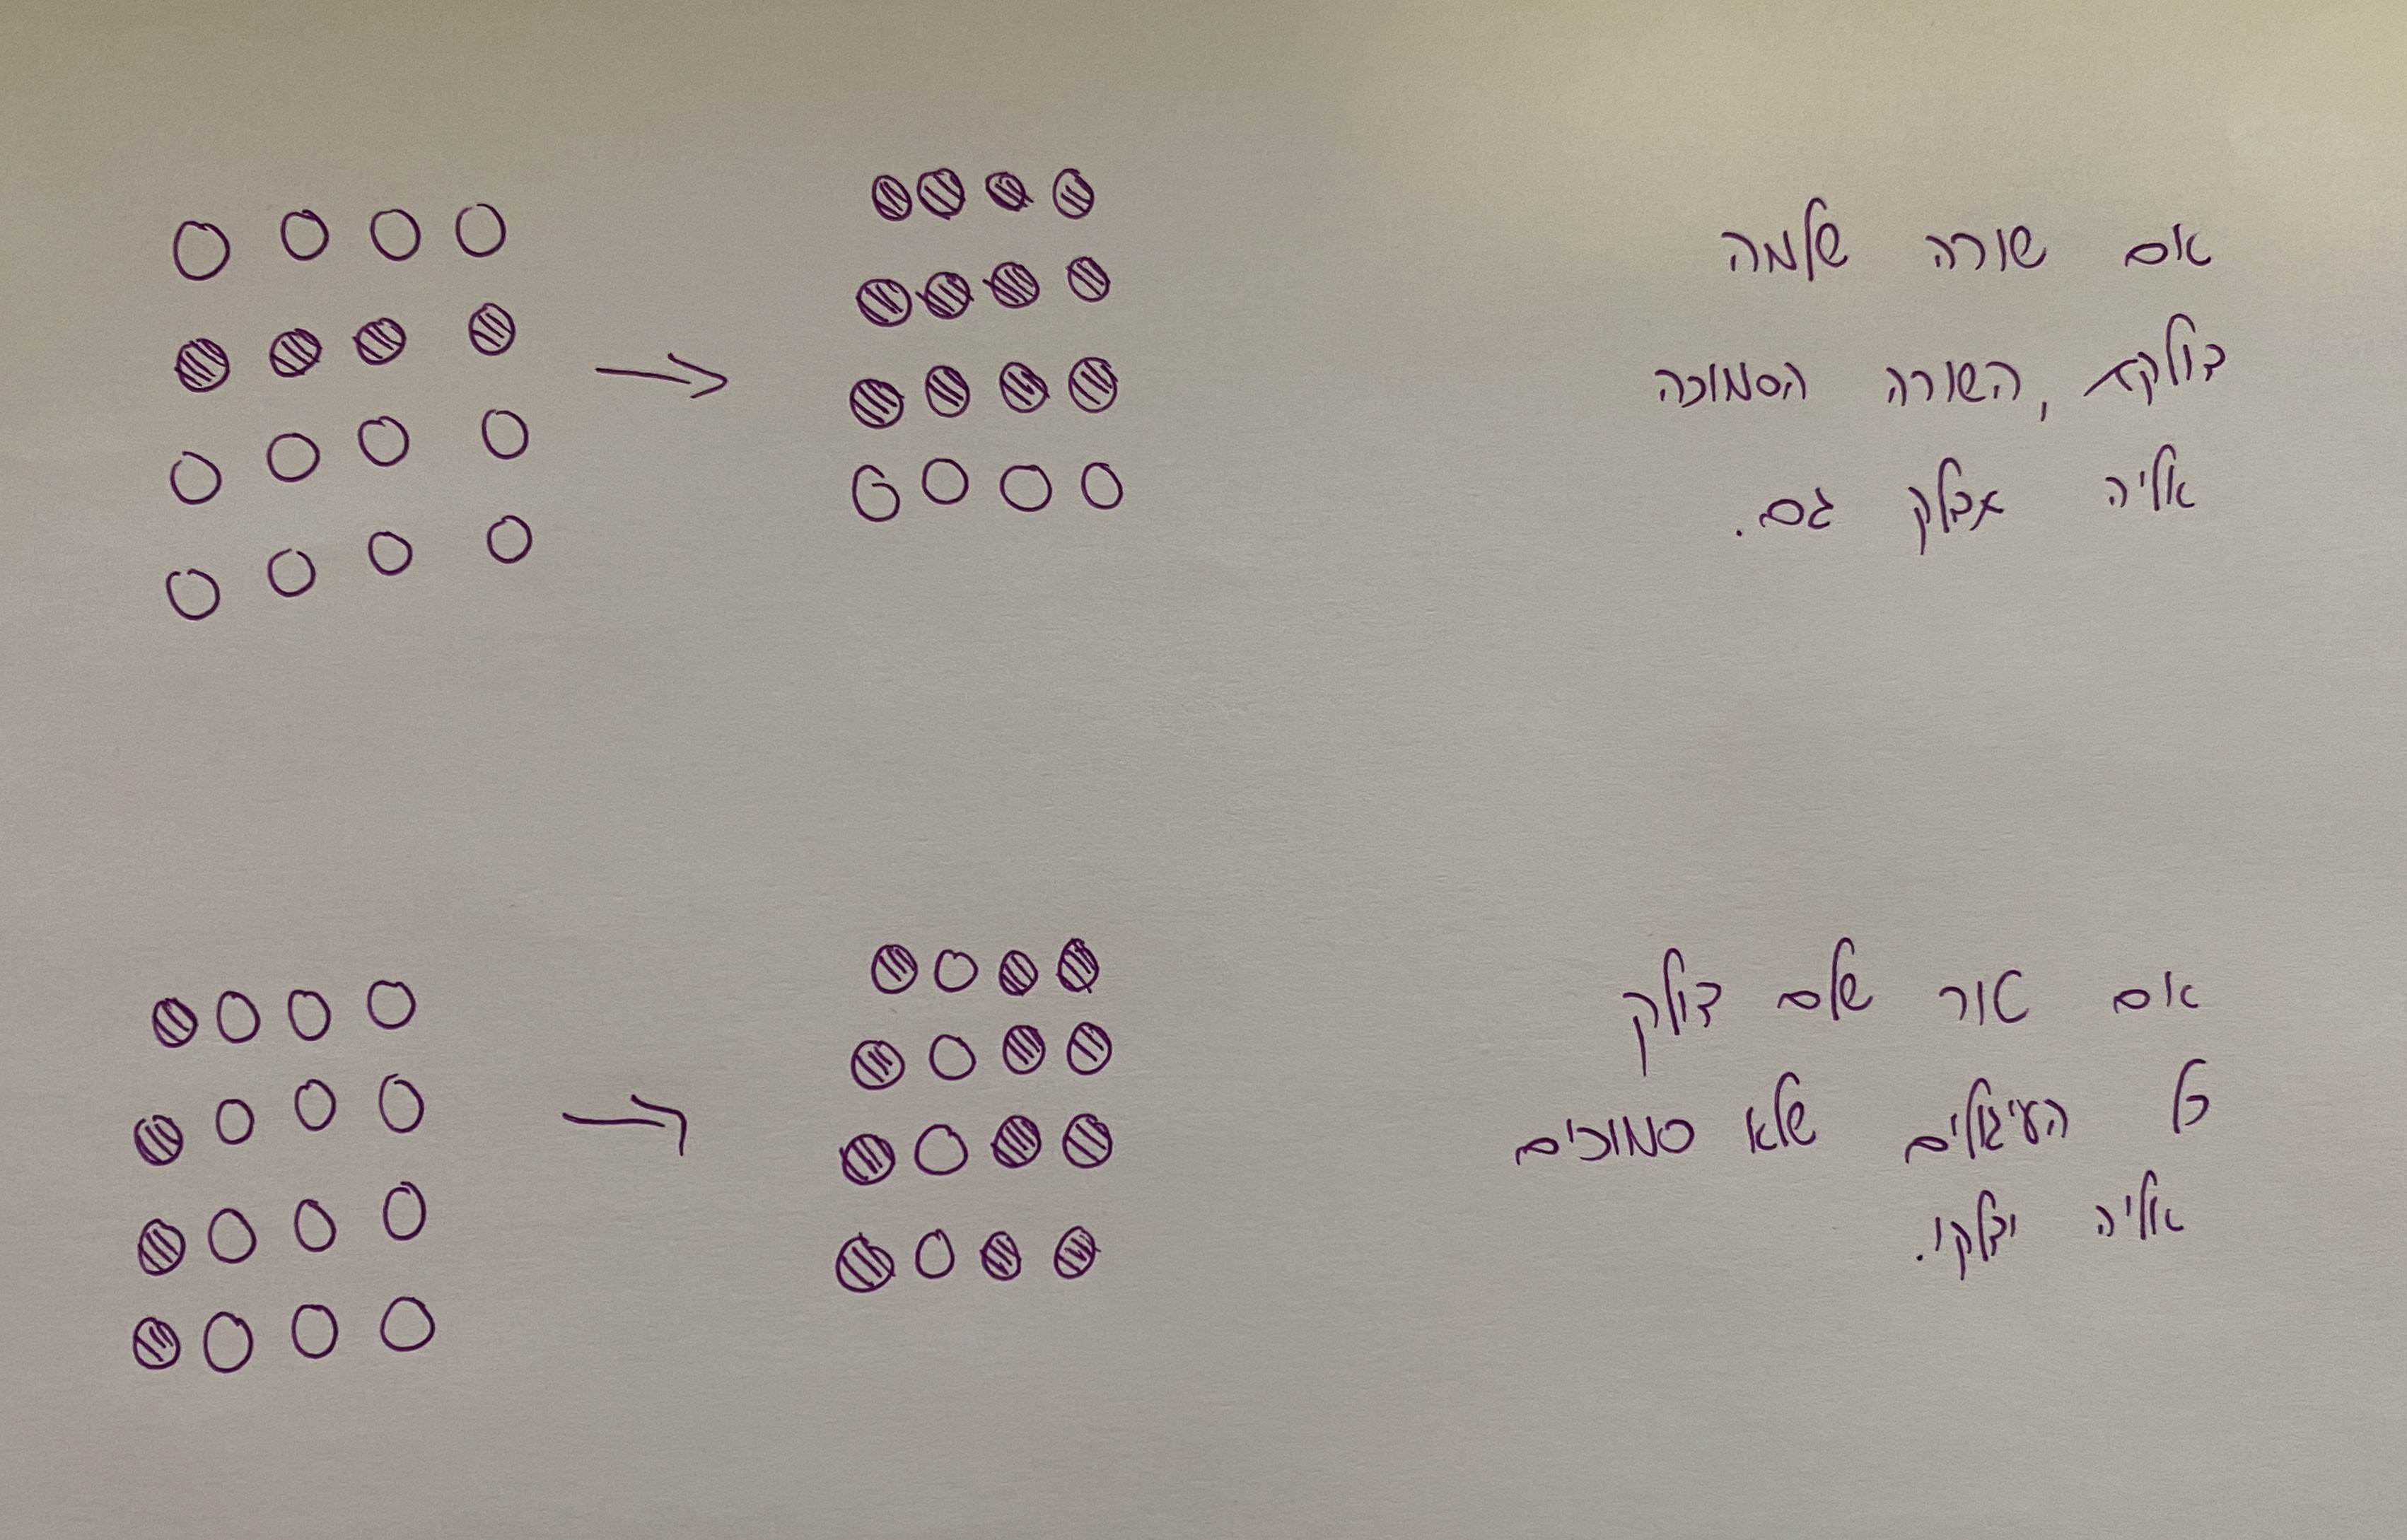 אם שורה שלמה
דולקת, השורה הסמוכה
אליה תדלק גם.
אם טור שלם דולק
כל העיגולים שלא סמוכים
אליה ידלקו.